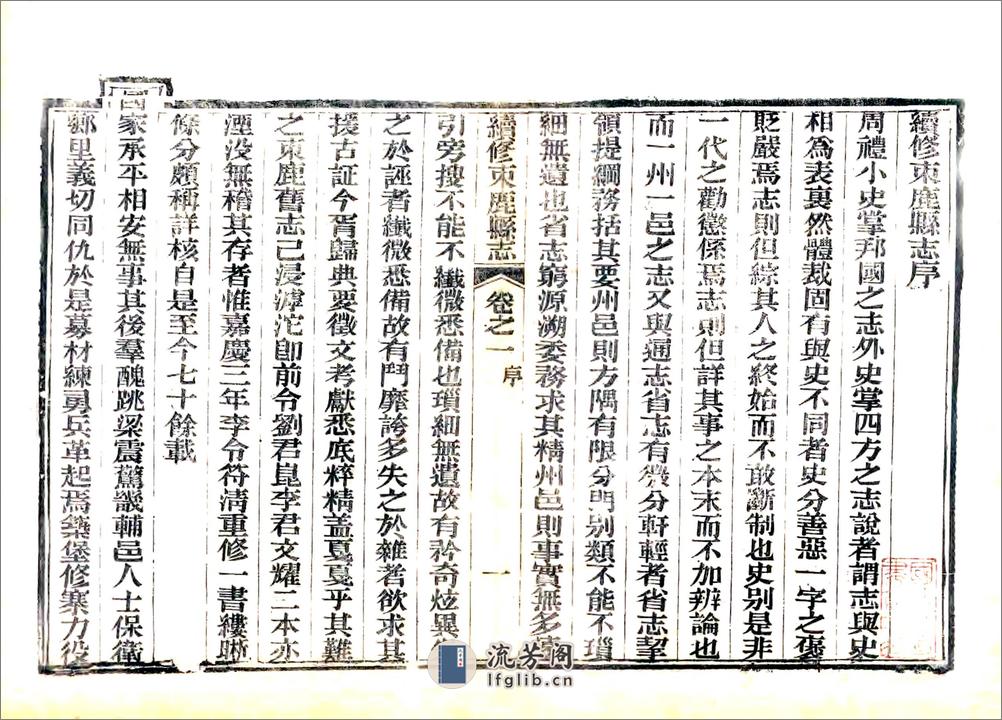 續修束鹿縣志序
周禮小史掌邦國之志外史掌四方之志說者謂志與史
相為表裏然體裁固有與史不同者史分善惡一字之褒
貶嚴焉志則但綜其人之終始而不敢斷制也史別是非
一代之勸懲係焉志則但詳其事之本末而不加辨論也
而一州一邑之志又與通志省志有微分軒輊者省志挈
領提綱務括其要州邑則方隅有限分門別類不能不瑣
細無遺也省志窮源溯委務求其精州邑則事實無多
續修束鹿縣志 卷之一 序 一
引旁搜不能不纖微悉備也瑣細無遺故有矜奇炫異
之於誣者纖微悉備故有鬥靡誇多失之於雜者欲求其
援古証今胥歸典要徵文考獻悉底粹精蓋戛戛乎其難
之束鹿舊志已浸滹沱即前令劉君崑李君文耀二本亦
湮没無稽其存者惟嘉慶三年李令符清重修一書縷晰
條分頗稱詳核自是至今七十餘載
國家承平相安無事其後羣醜跳梁震驚畿輔邑人士保衛
鄉里義切同仇於是募材練勇兵革起焉築堡修寨力役
流芳阁
lfglib.cn